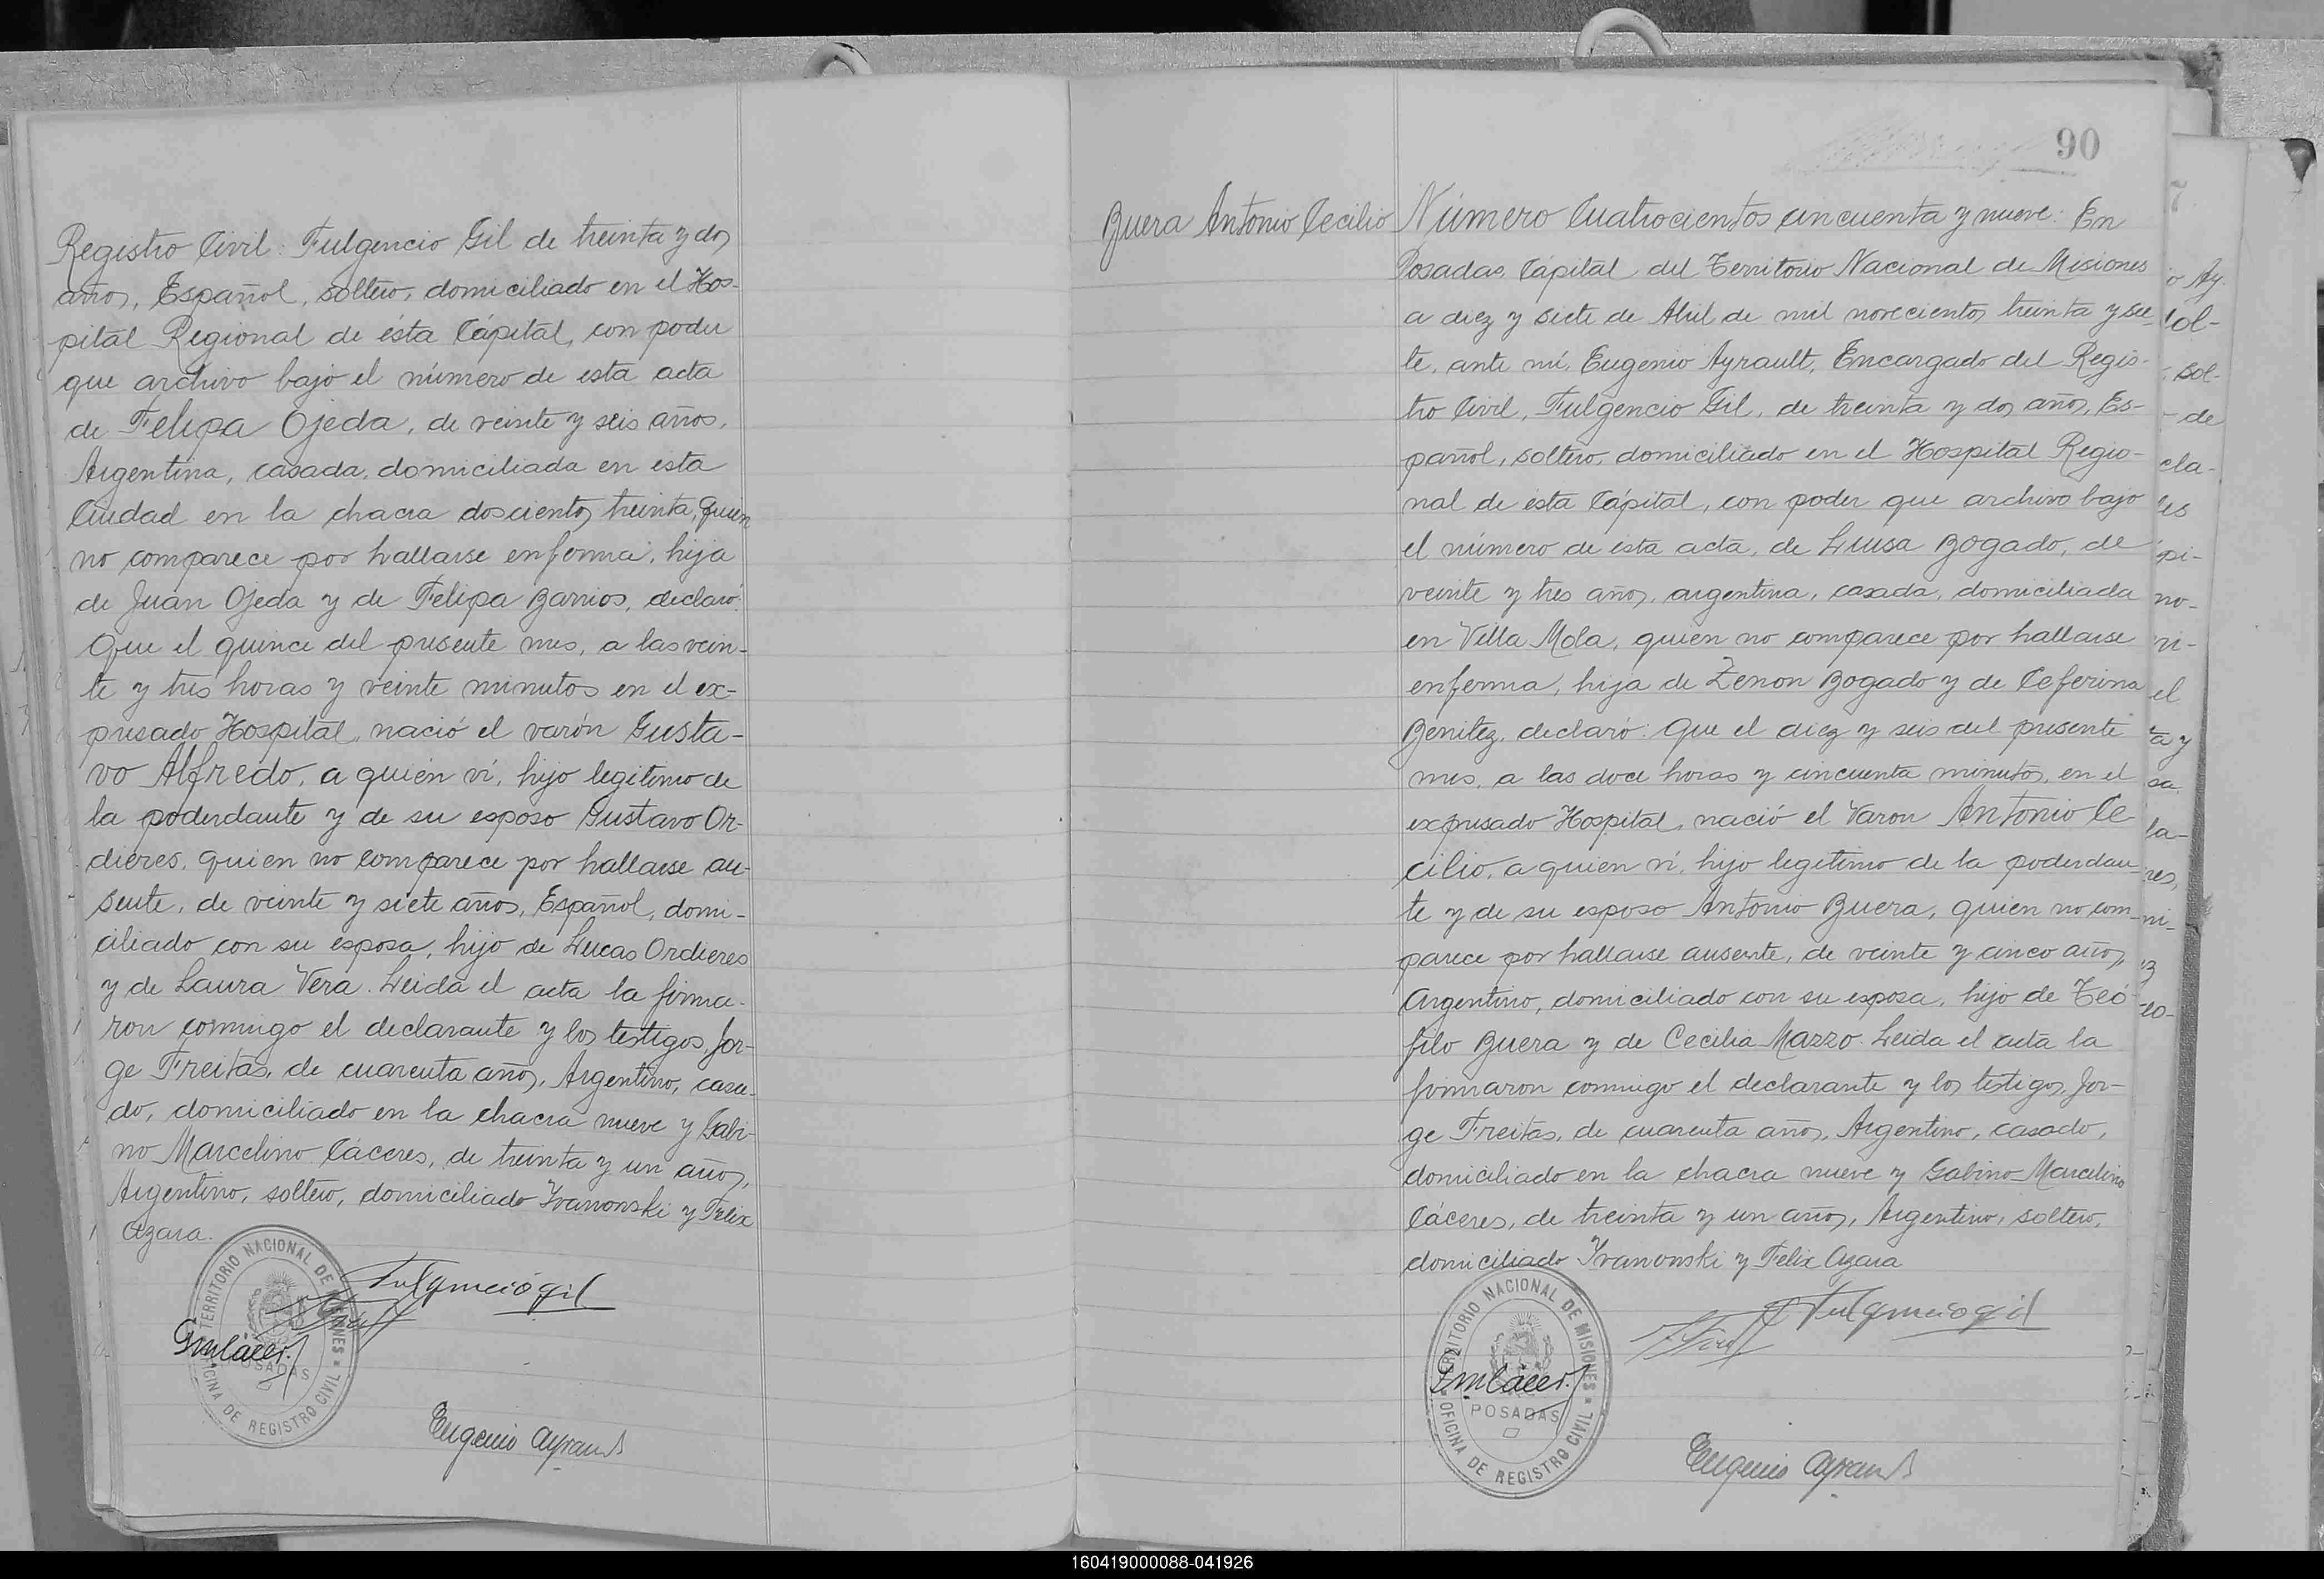 Registro Civil: Fulgencio Gil de treinta y dos
años, Español, soltero, domiciliado en el Hos-
pital Regional de ésta Cápital, con poder
que archivo bajo el número de esta acta
de Felipa Ojeda, de veinte y seis años,
Argentina, casada, domiciliada en esta
Ciudad en la chacra doscientos treinta, quien
no comparece por hallarse enferma, hija
de Juan Ojeda y de Felipa Barrios, declaró:
Que el quince del presente mes, a las vein-
te y tres horas y veinte minutos en el ex-
presado Hospital, nació el varón Gusta-
vo Alfredo, a quién ví, hijo legítimo de
la poderdante y de su esposo Gustavo Or-
dieres, quien no comparece por hallarse au-
sente, de veinte y siete años, Español, domi-
ciliado con su esposa, hijo de Lucas Ordieres
y de Laura Vera. Leida el acta la firma-
ron conmigo el declarante y los testigos, Jor-
ge Freitas, de cuarenta años, Argentino, casa-
do, domiciliado en la chacra nueve y Gabi-
no Marcelino Cáceres, de treinta y un años,
Argentino, soltero, domiciliado Ivanonski y Felix
Azara.
Fulgencio Gil
GMCáceres
TERRITORIO NACIONAL DE MISIONES
POSADAS
OFICINA DE REGISTRO CIVIL
Eugenio Ayrault
90
Buera Antonio Cecilio
Número Cuatrocientos cincuenta y nueve: En
Posadas, Cápital del Territorio Nacional de Misiones
a diez y siete de Abril de mil novecientos treinta y sie-
te, ante mí, Eugenio Ayrault, Encargado del Regis-
tro Civil, Fulgencio Gil, de treinta y dos años, Es-
pañol, soltero, domiciliado en el Hospital Regio-
nal de ésta Cápital, con poder que archivo bajo
el número de ésta acta, de Luisa Bogado, de
veinte y tres años, argentina, casada, domiciliada
en Villa Mola, quien no comparece por hallarse
enferma, hija de Zenon Bogado y de Ceferina
Benitez, declaró: Que el diez y seis del presente
mes, a las doce horas y cincuenta minutos, en el
expresado Hospital, nació el Varon Antonio Ce
cilio, a quien ví, hijo legítimo de la poderdan-
te y de su esposo Antonio Buera, quien no com-
parece por hallarse ausente, de veinte y cinco años,
Argentino, domiciliado con su esposa, hijo de Teó
filo Buera y de Cecilia Mazzo. Leida el acta la
firmaron conmigo el declarante y los testigos, Jor-
ge Freitas, de cuarenta años, Argentino, casado,
domiciliado en la chacra nueve y Gabino Marcelino
Cáceres, de treinta y un años, Argentino, soltero,
domiciliado Ivanonski y Felix Azara
Fulgencio Gil
GMCáceres
TERRITORIO NACIONAL DE MISIONES
POSADAS
OFICINA DE REGISTRO CIVIL
Eugenio Ayrault
160419000088-041926